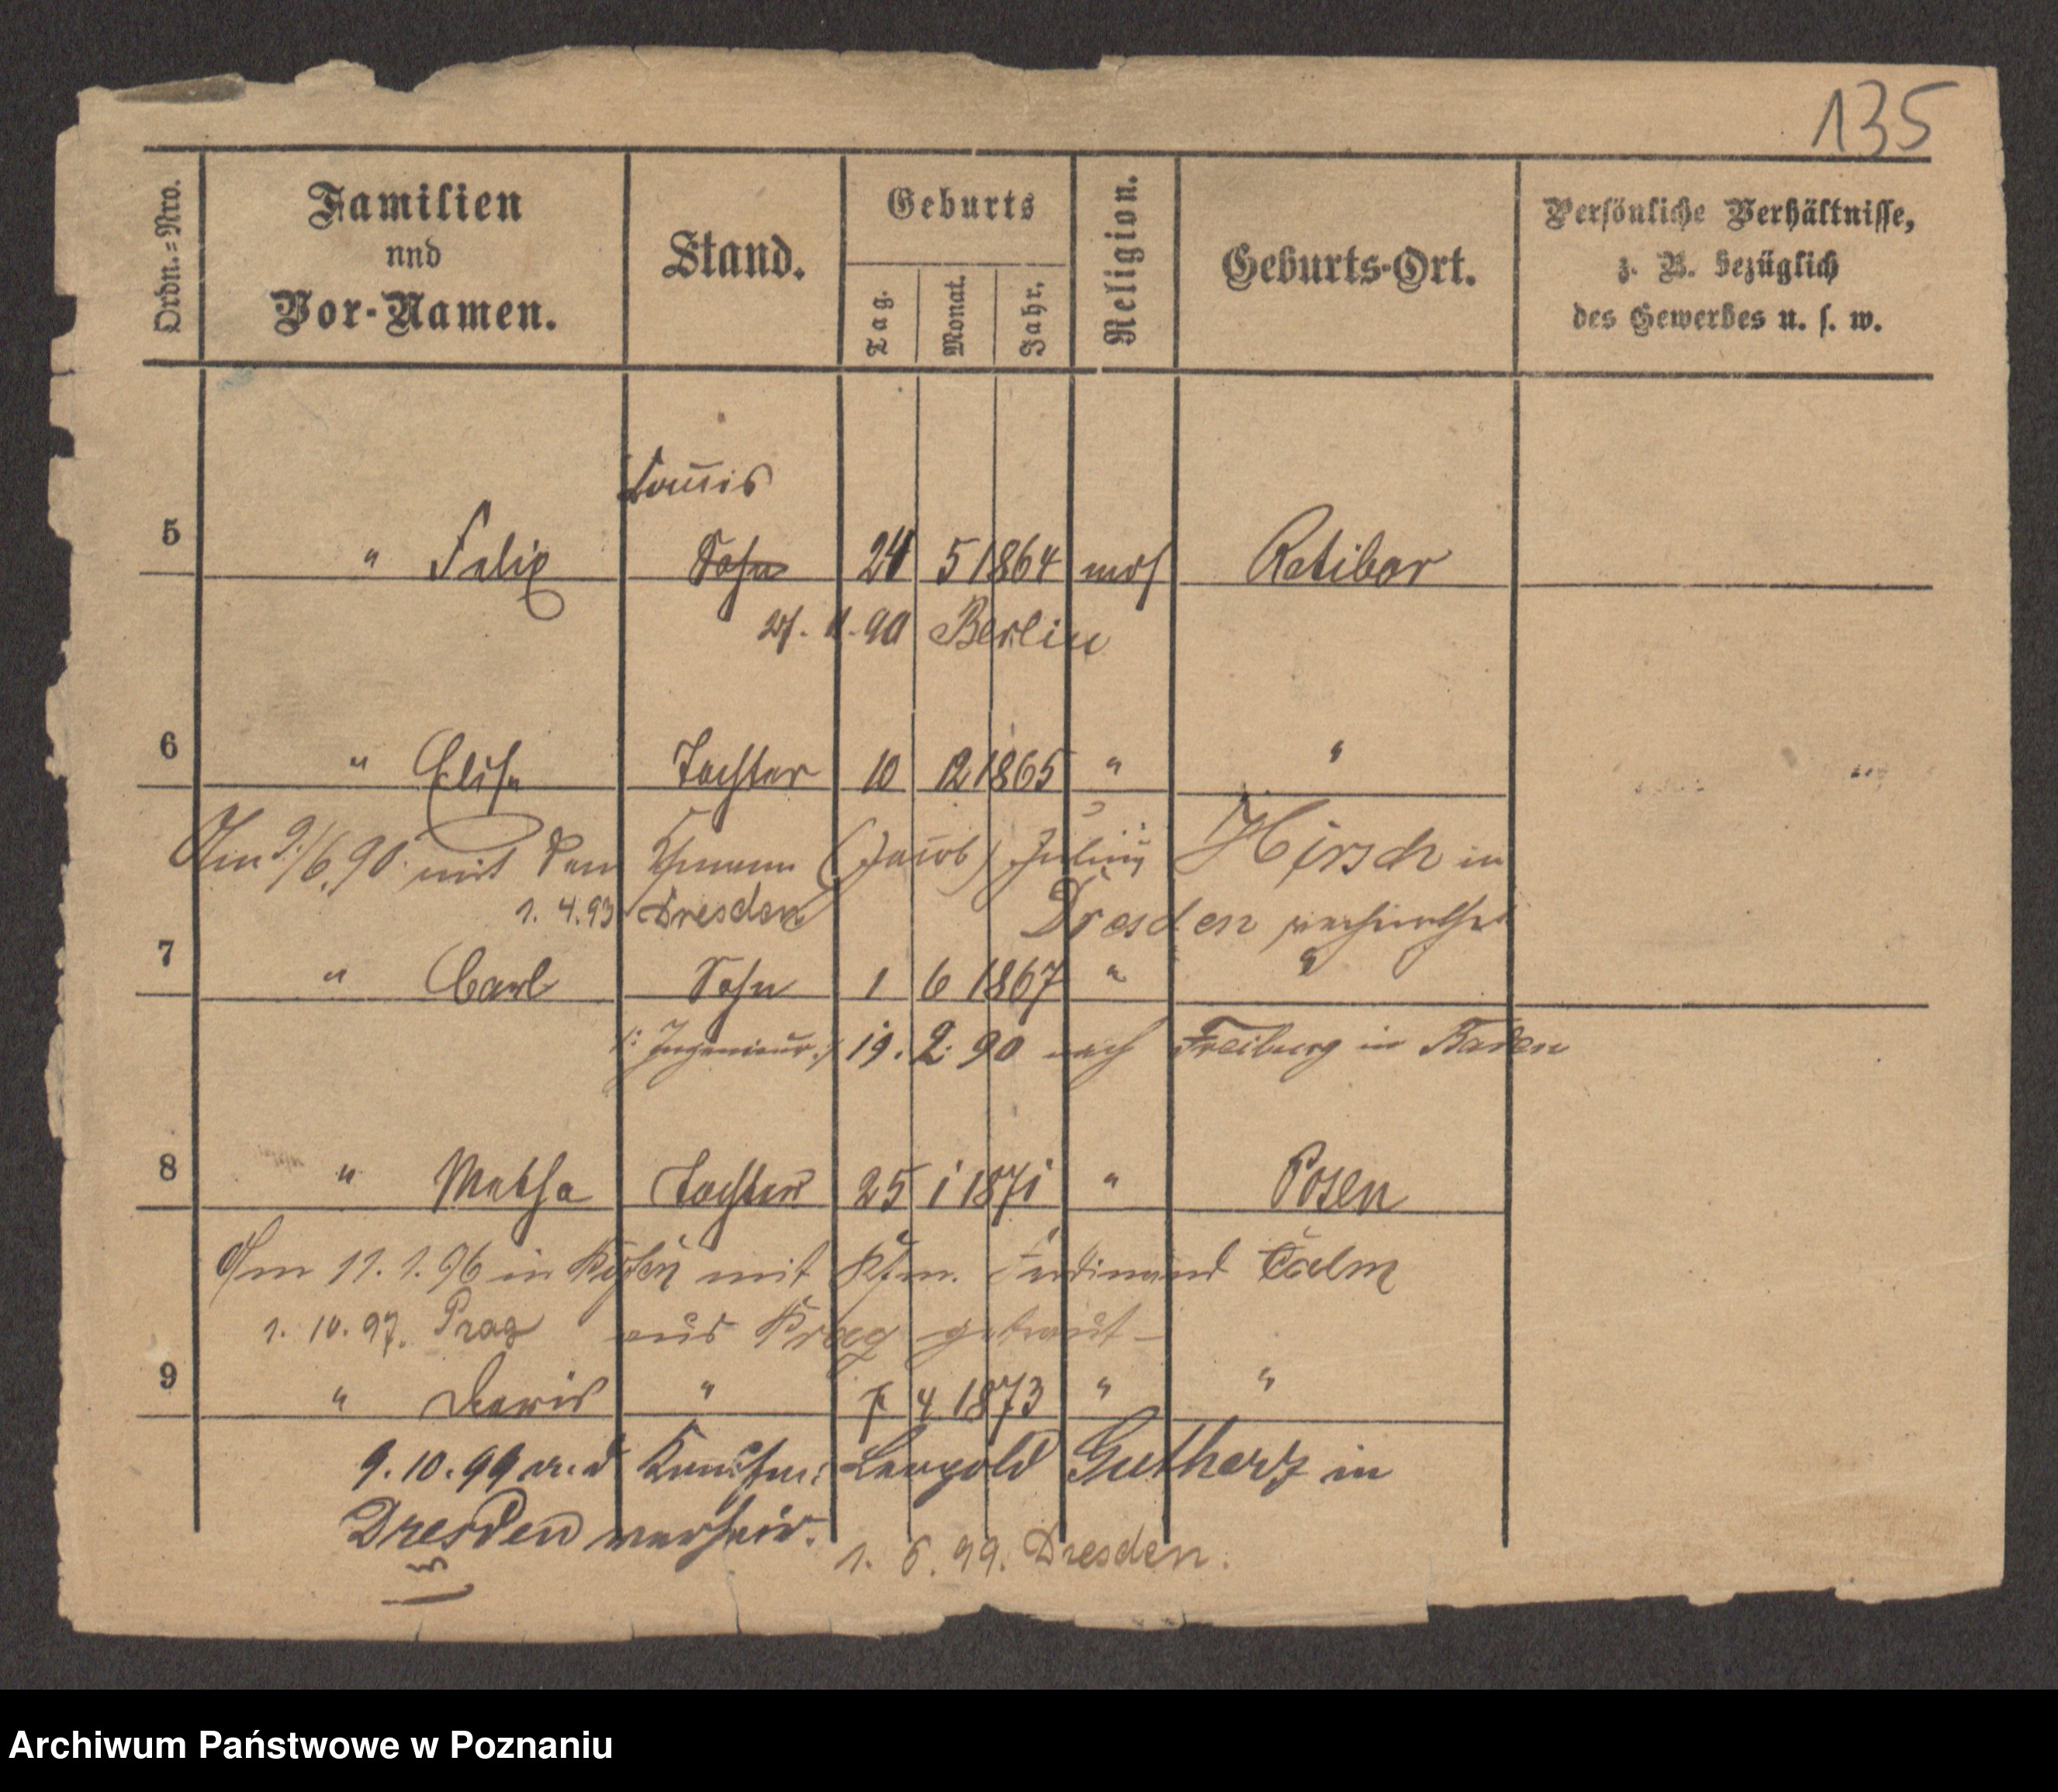 135
Ordn.=Nro.
Familien
und
Vor-Namen.
Stand.
Geburts
Tag.
Monat.
Jahr.
Religion.
Geburts-Ort.
Persönliche Verhältnisse,
z. B. bezüglich
des Gewerbes u. s. w.
Commis
5 " Felix Sohn 24 5 1864 mos Ratibor
90 Berlin
6 " Elise Tochter 10 12 1865 " "
Am 9/6.90 mit dem Kfmann (Jacob) Julius Hirsch in
1. 4. 93 Dresden Dresden verheirathet
7 " Carl Sohn 1 6 1867 " "
/: Ingenieur :/ 19. 2. 90 nach Freiburg in Baden
8 " Martha Tochter 25 1 1871 " Posen
Am 11. 1. 96 in Posen mit Kfm. Ferdinand
1. 10. 97. Prag aus Prag getraut —
9 " Doris " 7 4 1873 " "
9. 10. 99 m. d Kaufm: Leopold Gutherz in
Dresden verheir.
1. 6. 99. Dresden.
Archiwum Państwowe w Poznaniu